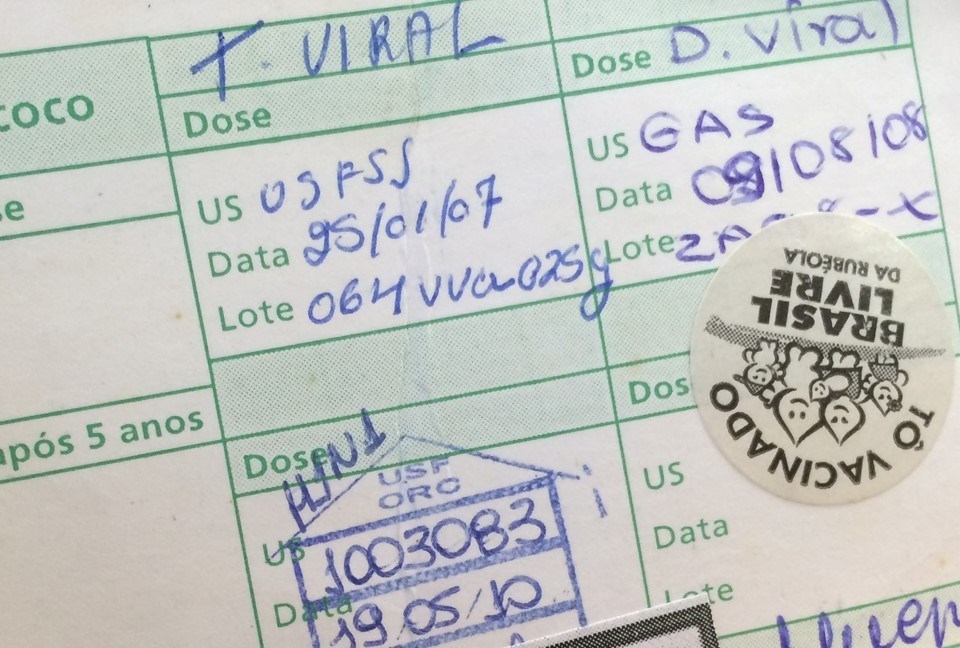 T. VIRAL
Dose
US USFSS
Data 25/01/07
Lote 064VVa025g
Dose D. Viral
US GAS
Data 09/08/08
Lote
após 5 anos
Dose H1N1
USF
ORO
US
1003083
Data 19 05/10
US
Data
TÔ VACINADO
BRASIL
LIVRE
DA RUBÉOLA